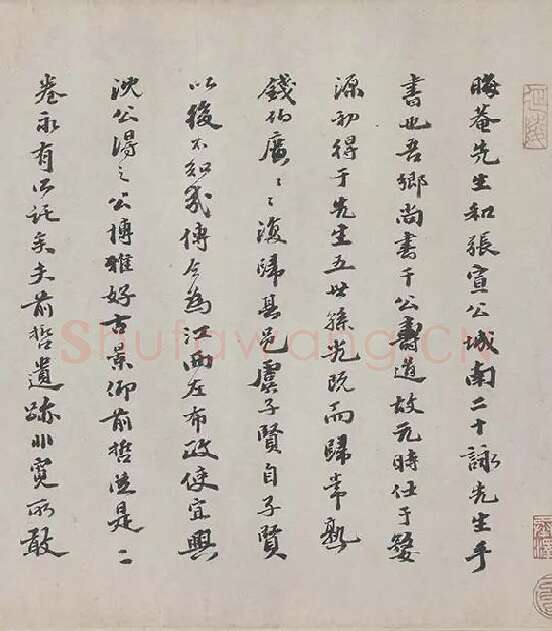 晦菴先生和張宣公城南二十詠先生手
書也吾鄉尚書干公壽道故元時仕于婺
源初得于先生五世孫光既而歸常熟
錢伯廣〻〻復歸其邑虞子賢自子賢
以後不知幾傳今為江西左布政使宜興
沈公得之公博雅好古景仰前哲從是二
卷永有所託矣夫前哲遺跡非寛所敢
Shufawang.CN